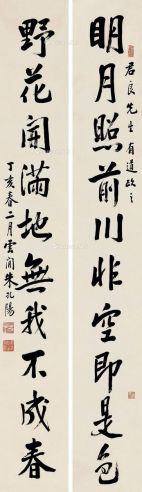 君良先生有道政之
明月照前川非空即是色
野花開滿地無我不成春
丁亥春二月雲間朱孔陽